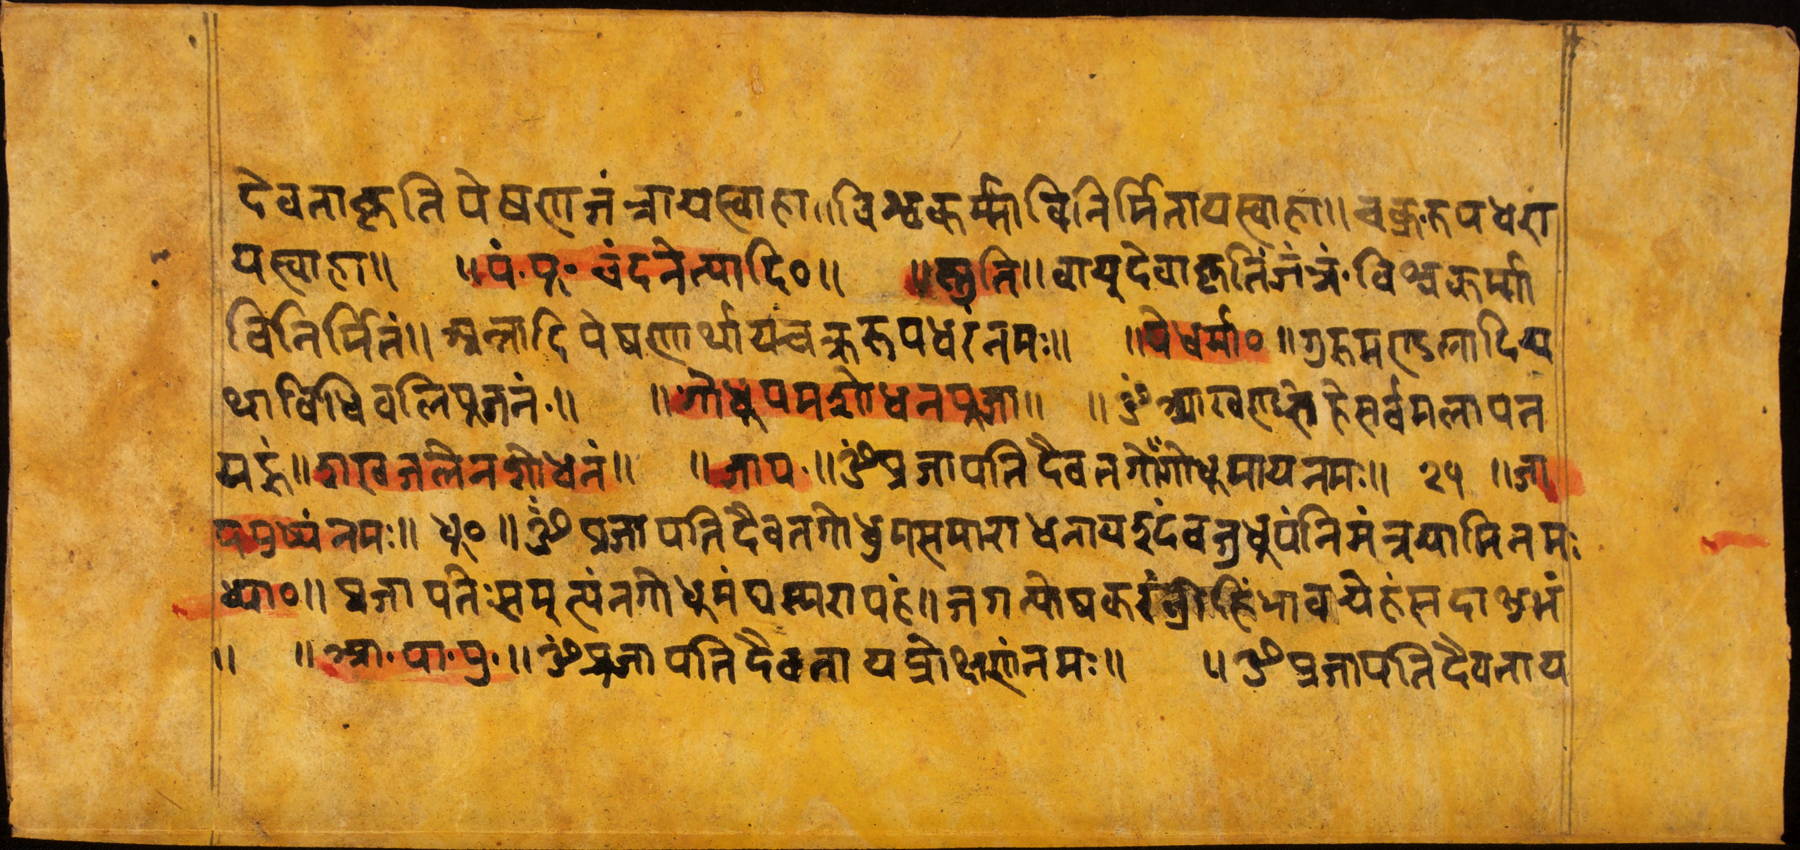 देवताकृति पेषणाजंत्रायस्वाहा॥विश्वकर्म्माविनिर्मितायस्वाहा॥ चक्ररुपधरा
यस्वाहा॥ ॥पं॰पु॰ चंदनेत्यादि०॥ ॥स्तुति॥ वायुदेवाकृतिंजंत्रं॰विश्वकर्म्मा
विनिर्मितं॥ अन्नादि पेषणार्थायचक्ररूपधरंनमः॥ ॥येधर्मा०॥गुरुमण्डलादिय
थाविधिवलिपुजनं॰॥ ॥गोधुपमशोधनपुजा॥ ॥ॐ सर्वमलापन
यहुं॥ शंखजलेनशोधनं॥ ॥जाप॰॥ॐप्रजापतिदैवतगोंगोधुमायनमः॥ २५ ॥जा
पपुष्पंनमः॥ धु०॥ॐप्रजापतिदैवतगोधुमसमाराधनायइदंवज्रधुपंनिमंत्रयामिनमः
ध्या०॥ प्रजापतिःसमुत्पंनगोधुमं जगत्पोषकरं भावयेहंसदाशुभं
॥ ॥आ॰पा॰पु॰॥ॐप्रजापतिदैवताय प्रोक्षणंनमः॥ ॥ॐप्रजापतिदैवताय